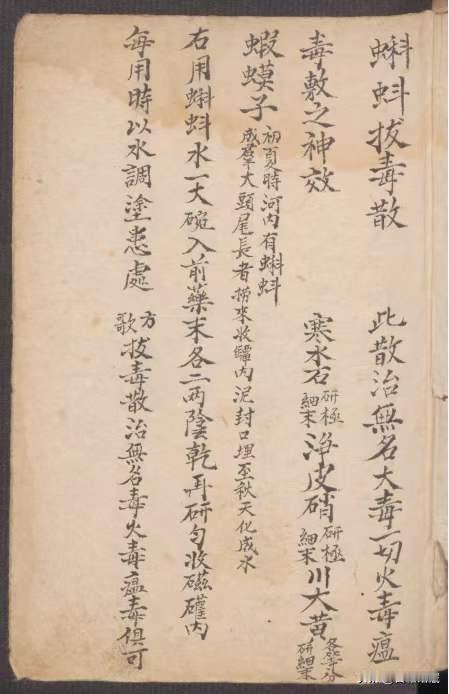 蝌蚪拔毒散　此散治無名大毒一切火毒瘟
毒敷之神效　寒水石 研極細末 淨皮硝 研極細末 川大黃 各等分研細末
蝦蟆子 初夏時河内有蝌蚪成羣大頭尾長者撈來收罈内泥封口埋至秋天化成水
右用蝌蚪水一大碗入前藥末各二兩陰乾再研勻收磁礶内
每用時以水調塗患處　方歌 拔毒散治無名毒火毒瘟毒俱可